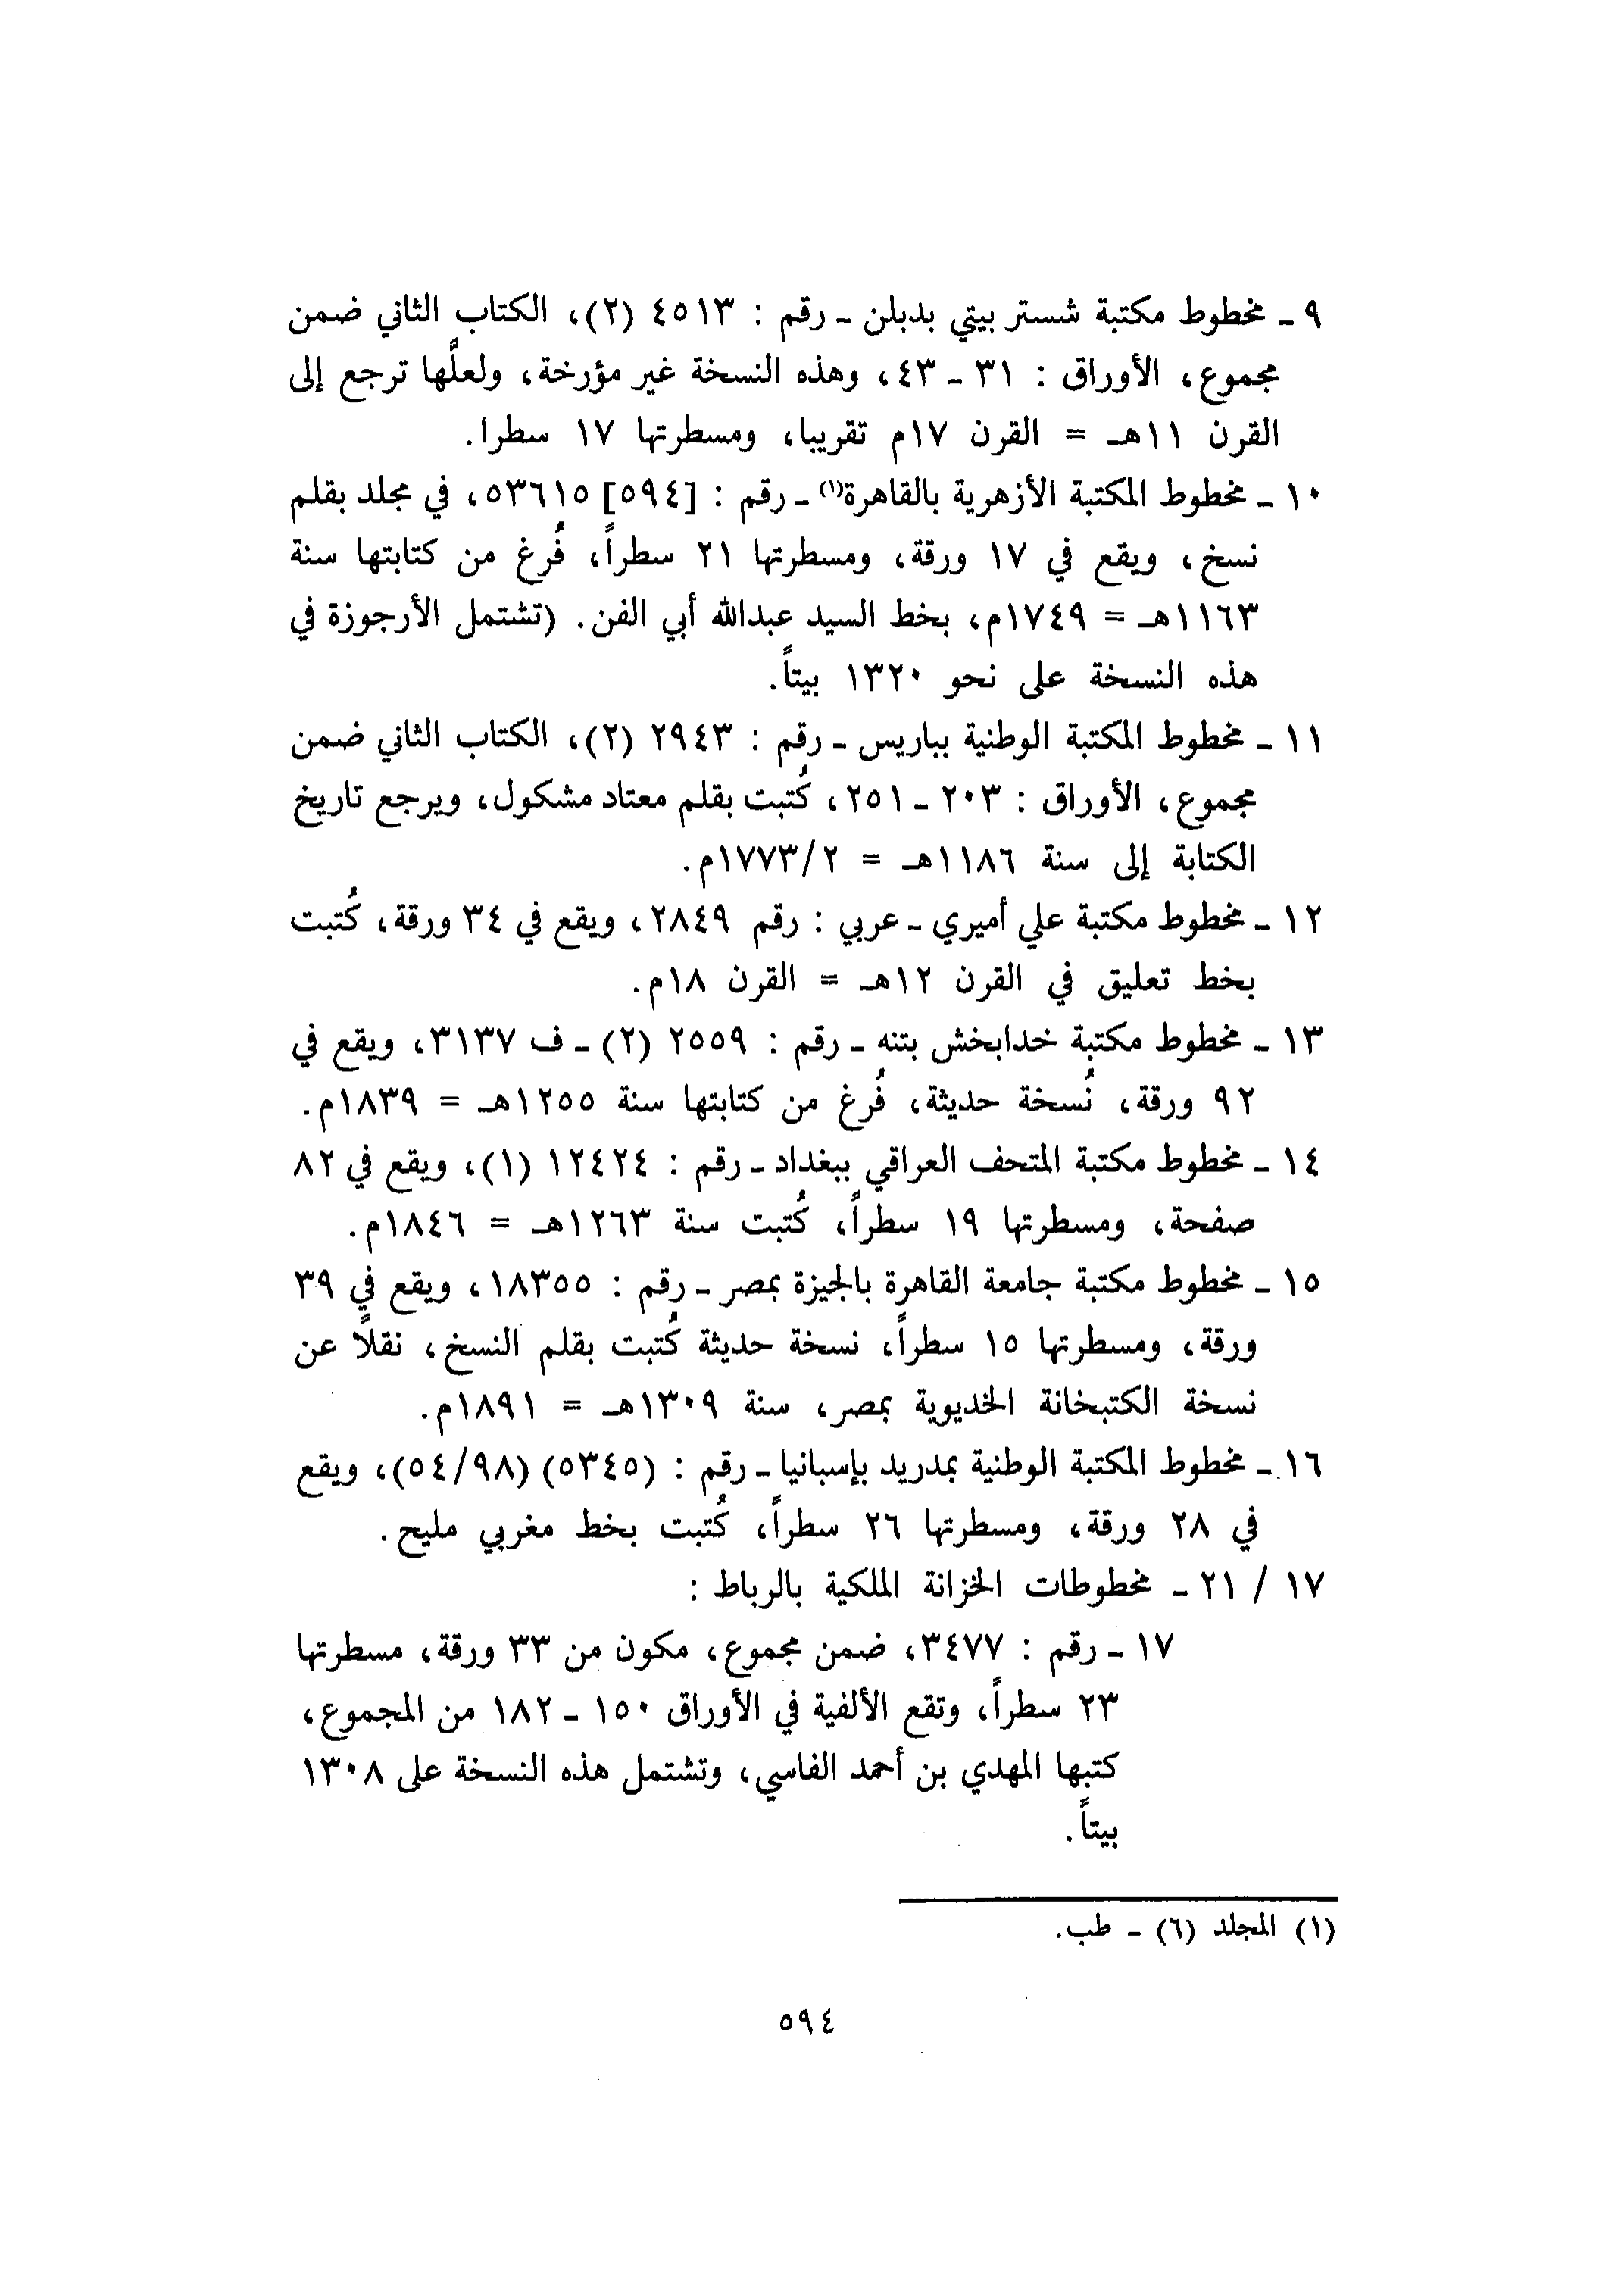 ٩ ـ مخطوط مكتبة شستر بيتي بدبلن ـ رقم : ٤٥١٣ (٢)، الكتاب الثاني ضمن
مجموع، الأوراق : ٣١ ـ ٤٣، وهذه النسخة غير مؤرخة، ولعلَّها ترجع إلى
القرن ١١هـ = القرن ١٧م تقريبا، ومسطرتها ١٧ سطرا.
١٠ ـ مخطوط المكتبة الأزهرية بالقاهرة(١) ـ رقم : [٥٩٤] ٥٣٦١٥، في مجلد بقلم
نسخ، ويقع في ١٧ ورقة، ومسطرتها ٢١ سطراً، فُرغ من كتابتها سنة
١١٦٣هـ = ١٧٤٩م، بخط السيد عبدالله أبي الفن. (تشتمل الأرجوزة في
هذه النسخة على نحو ١٣٢٠ بيتاً.
١١ ـ مخطوط المكتبة الوطنية بباريس ـ رقم : ٢٩٤٣ (٢)، الكتاب الثاني ضمن
مجموع، الأوراق : ٢٠٣ ـ ٢٥١، كُتبت بقلم معتاد مشكول، ويرجع تاريخ
الكتابة إلى سنة ١١٨٦هـ = ١٧٧٣/٢م.
١٢ ـ مخطوط مكتبة علي أميري ـ عربي : رقم ٢٨٤٩، ويقع في ٣٤ ورقة، كُتبت
بخط تعليق في القرن ١٢هـ = القرن ١٨م.
١٣ ـ مخطوط مكتبة خدابخش بتنه ـ رقم : ٢٥٥٩ (٢) ـ ف ٣١٣٧، ويقع في
٩٢ ورقة، نُسخة حديثة، فُرغ من كتابتها سنة ١٢٥٥هـ = ١٨٣٩م.
١٤ ـ مخطوط مكتبة المتحف العراقي ببغداد ـ رقم : ١٢٤٢٤ (١)، ويقع في ٨٢
صفحة، ومسطرتها ١٩ سطراً، كُتبت سنة ١٢٦٣هـ = ١٨٤٦م.
١٥ ـ مخطوط مكتبة جامعة القاهرة بالجيزة بمصر ـ رقم : ١٨٣٥٥، ويقع في ٣٩
ورقة، ومسطرتها ١٥ سطراً، نسخة حديثة كُتبت بقلم النسخ، نقلاً عن
نسخة الكتبخانة الخديوية بمصر، سنة ١٣٠٩هـ = ١٨٩١م.
١٦ ـ مخطوط المكتبة الوطنية بمدريد بإسبانيا ـ رقم : (٥٣٤٥) (٥٤/٩٨)، ويقع
في ٢٨ ورقة، ومسطرتها ٢٦ سطراً، كُتبت بخط مغربي مليح.
١٧ / ٢١ ـ مخطوطات الخزانة الملكية بالرباط :
١٧ ـ رقم : ٣٤٧٧، ضمن مجموع، مكون من ٣٣ ورقة، مسطرتها
٢٣ سطراً، وتقع الألفية في الأوراق ١٥٠ ـ ١٨٢ من المجموع،
كتبها المهدي بن أحمد الفاسي، وتشتمل هذه النسخة على ١٣٠٨
بيتاً.
(١) المجلد (٦) ـ طب.
٥٩٤